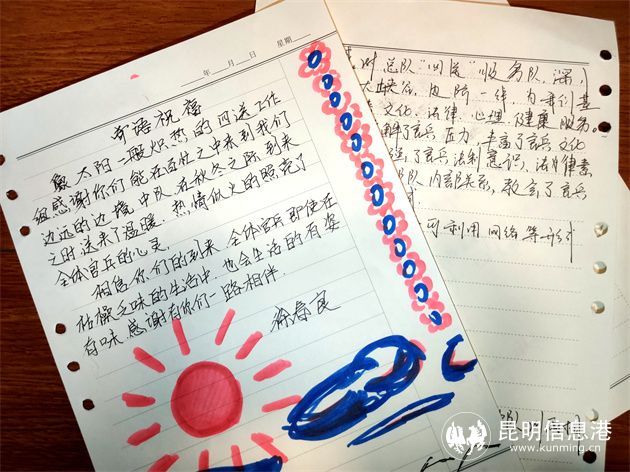 年 月 日 星期
寄语祝福
像太阳一般炽热的四送工作
组感谢你们能在百忙之中来到我们
边远的边境中队,在秋冬之际到来
之时送来了温暖.热情似火的照亮了
全体官兵的心灵.
相信你们的到来,全体官兵即使在
枯燥乏味的生活中.也会生活的有姿
有味.感谢有你们一路相伴.
徐春良
对总队"四送"服务队,深
文化、法律、心理、健康服务。
解了官兵压力,丰富了官兵文化
了官兵法制意识,法律
部队内部关系,教会了官兵
可利用网络等形
昆明信息港
www.kunming.cn